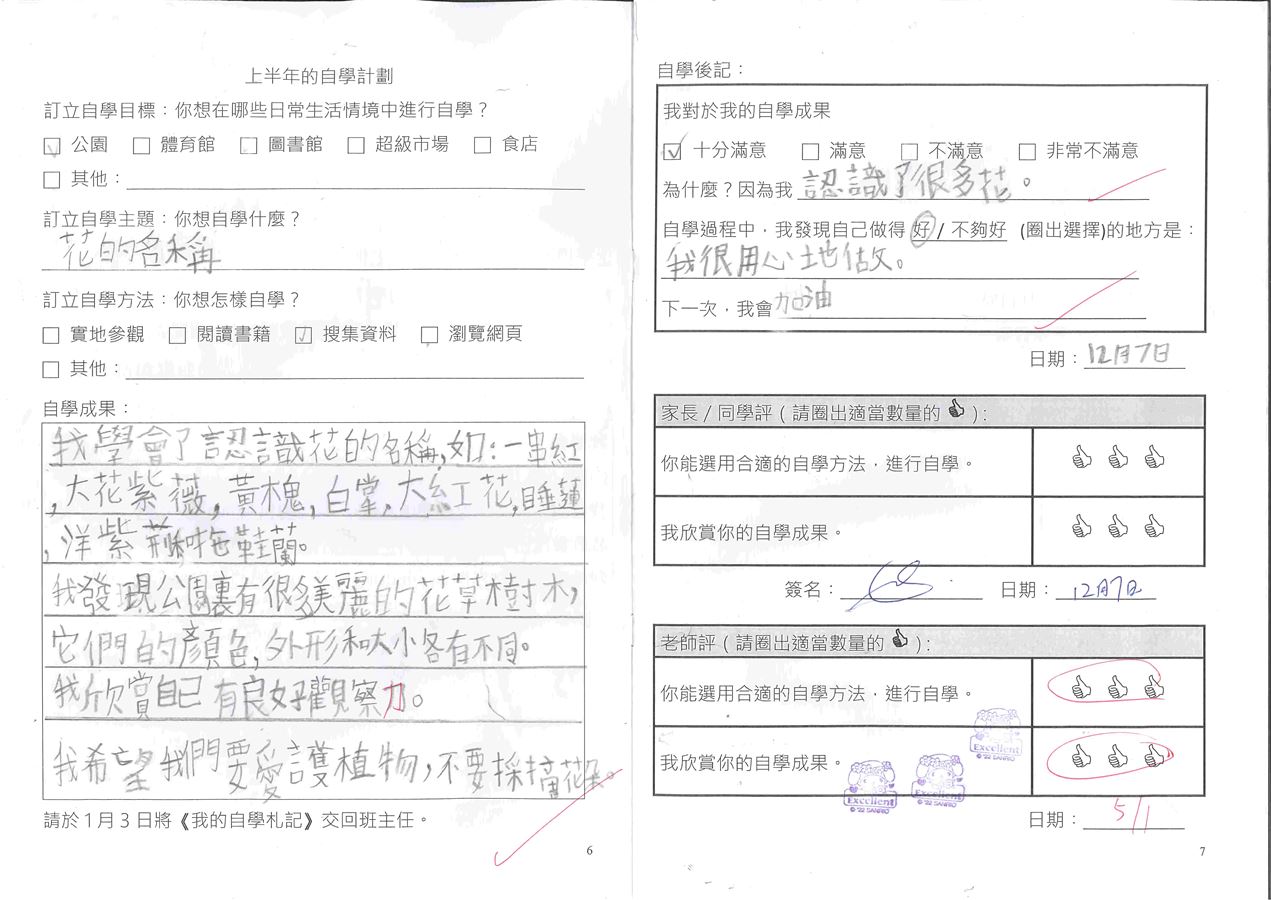 上半年的自學計劃
訂立自學目標：你想在哪些日常生活情境中進行自學？
☑ 公園 □ 體育館 □ 圖書館 □ 超級市場 □ 食店
□ 其他：
訂立自學主題：你想自學什麼？
花的名稱
訂立自學方法：你想怎樣自學？
□ 實地參觀 □ 閱讀書籍 ☑ 搜集資料 □ 瀏覽網頁
□ 其他：
自學成果：
我學會了認識花的名稱，如：一串紅
，大花紫薇，黃槐，白掌，大紅花，睡蓮
，洋紫荊和拖鞋蘭。
我發現公園裏有很多美麗的花草樹木，
它們的顏色，外形和大小各有不同。
我欣賞自己有良好觀察力。
我希望我們要愛護植物，不要採摘花朵。
請於1月3日將《我的自學札記》交回班主任。
6
自學後記：
我對於我的自學成果
☑ 十分滿意 □ 滿意 □ 不滿意 □ 非常不滿意
為什麼？因為我 認識了很多花。
自學過程中，我發現自己做得 好 / 不夠好 (圈出選擇)的地方是：
我很用心地做。
下一次，我會加油
日期：12月7日
家長 / 同學評 ( 請圈出適當數量的 👍 )：
你能選用合適的自學方法，進行自學。
我欣賞你的自學成果。
簽名： 日期：12月7日
老師評 ( 請圈出適當數量的 👍 )：
你能選用合適的自學方法，進行自學。
Excellent
© '22 SANRIO
我欣賞你的自學成果。
Excellent
© '22 SANRIO
Excellent
© '22 SANRIO
日期：5/1
7